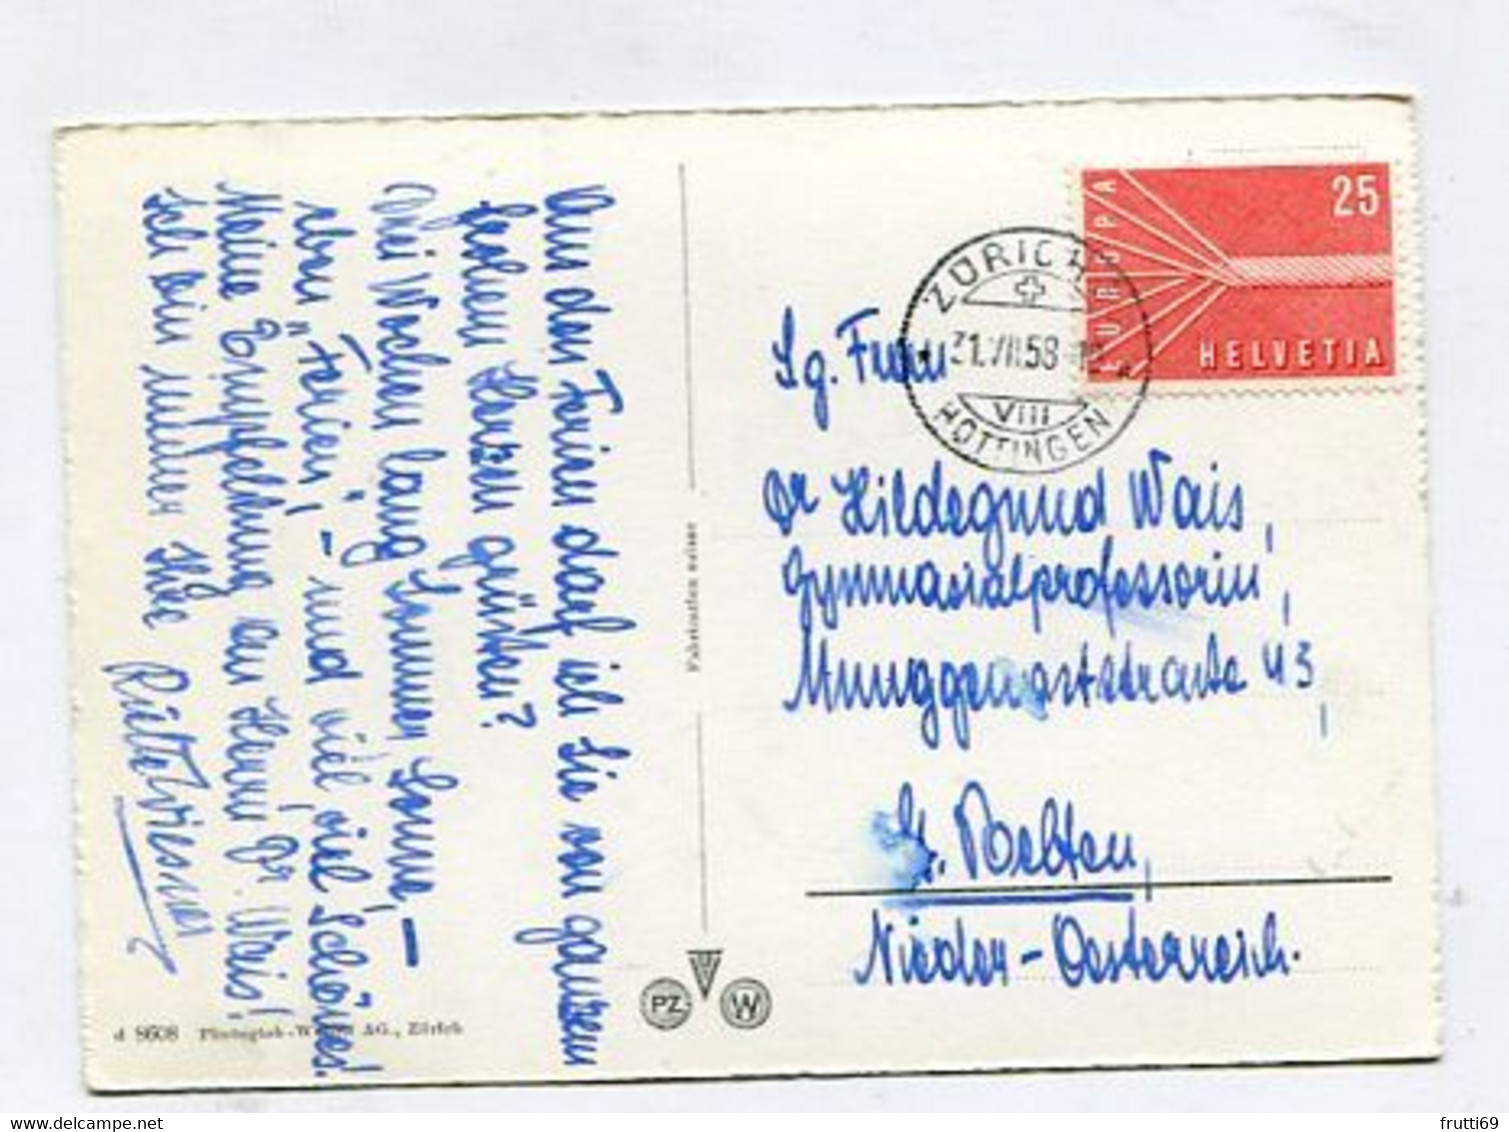 Aus den Ferien darf ich Sie von ganzem
frohen Herzen grüßen?
drei Wochen lang Sonne, Sonne, –
eben "Ferien", – und viel, viel Schönes!
Meine Empfehlung an Herrn Dr. Wais!
Ich bin immer Ihre
25
EUROPA
HELVETIA
ZÜRICH
31.VII.58
VIII
HOTTINGEN
Sg. Frau
Dr Hildegund Wais,
Gymnasialprofessorin,
43,
St. Poelten,
Nieder-Oesterreich.
PZ
W
d 8608 AG., Zürich
delcampe.net
frutti69